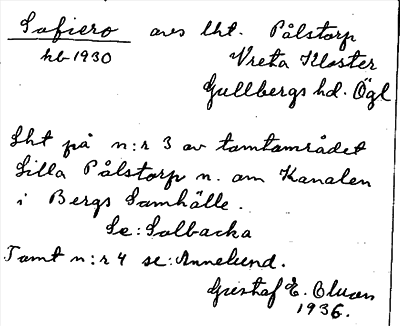 Sofiero avs lht. Pålstorp
hb 1930 Vreta Kloster
Gullbergs hd. Ögl
Lht på n:r 3 av tomtområdet
Lilla Pålstorp n. om Kanalen
i Bergs Samhälle.
Se: Solbacka
Tomt n:r 4 se: Annelund.
Gustaf E. Olsson
1936.